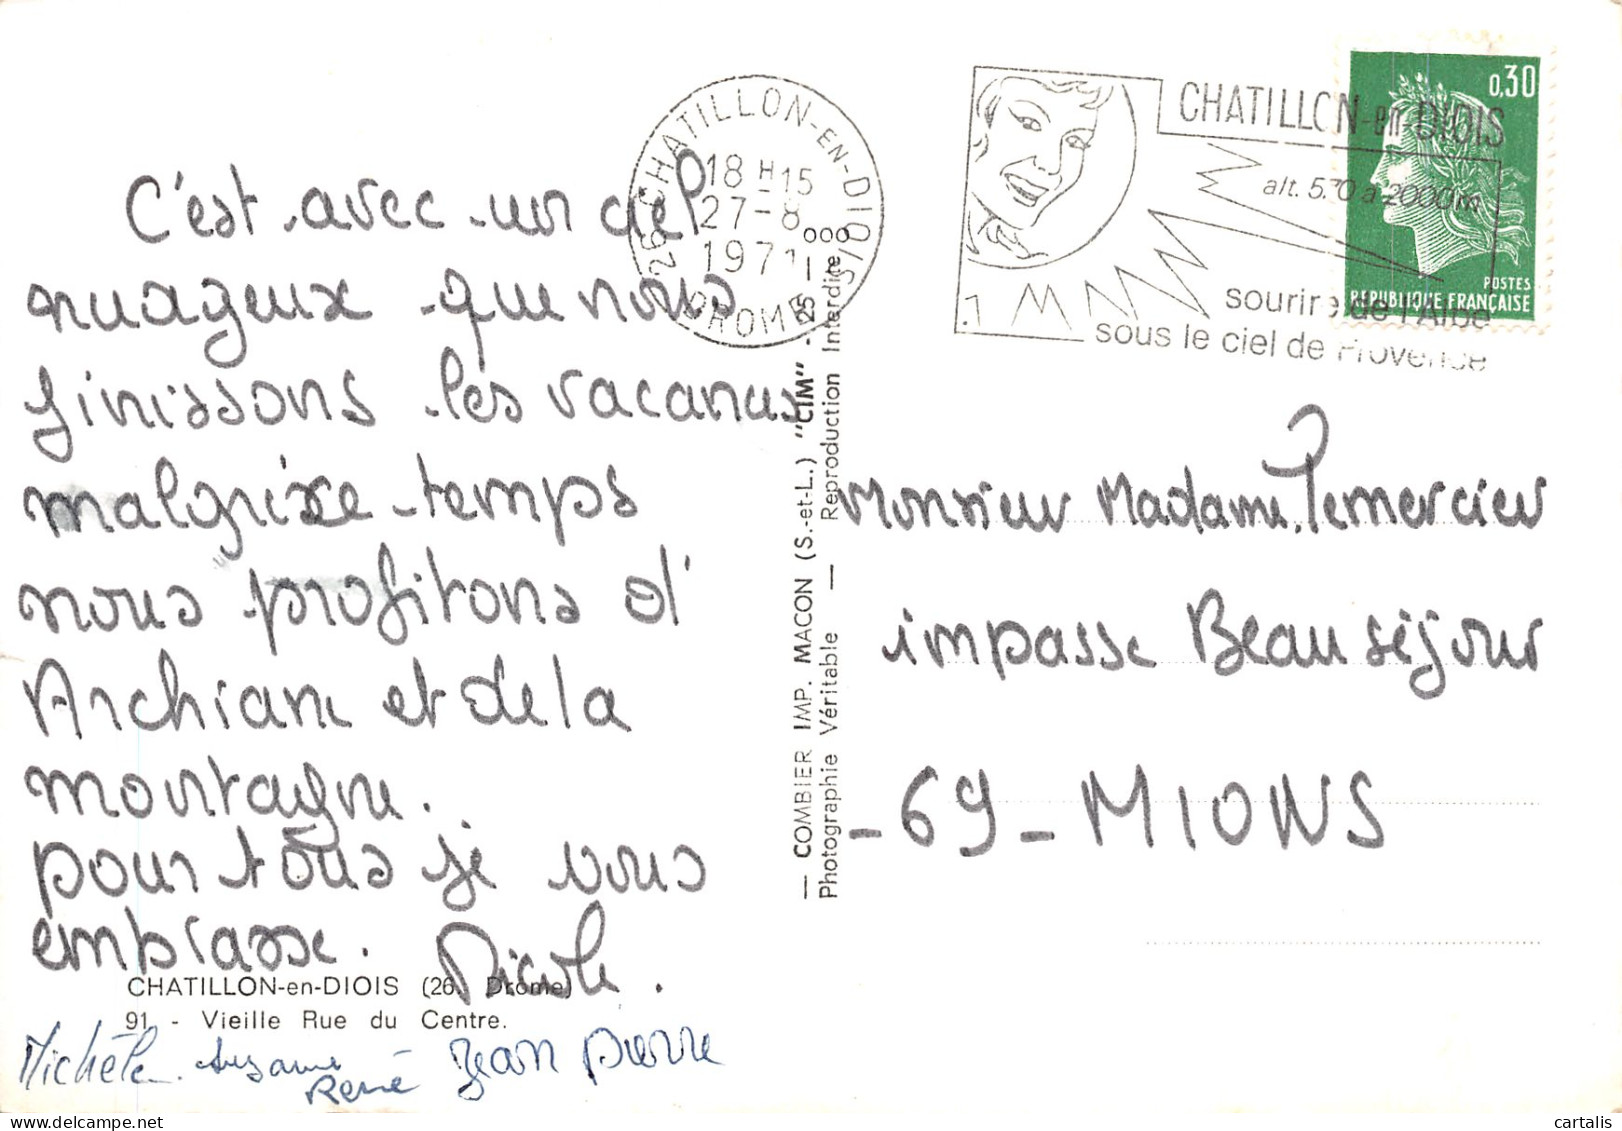 C'est avec un ciel
nuageux que nous
finissons les vacances
malgré ce temps
nous profitons d'
Archiane et de la
montagne.
pour tous je vous
embrasse. Nicole.
CHATILLON-en-DIOIS (26. Drôme)
91. - Vieille Rue du Centre.
Michèle. Suzanne
René Jean Pierre
— COMBIER IMP. MACON (S.-et-L.) "CIM" - 25 — 000
Photographie Véritable — Reproduction Interdite
26 CHATILLON-EN-DIOIS
18 H 15
27-8
1971
DROME
CHATILLON-en-DIOIS
alt. 570 à 2000m
sourire de l'Alpe
sous le ciel de Provence
0,30
POSTES
REPUBLIQUE FRANÇAISE
Monsieur Madame Lemercier
impasse Beauséjour
- 69 - MIONS
cartalis
www.delcampe.net